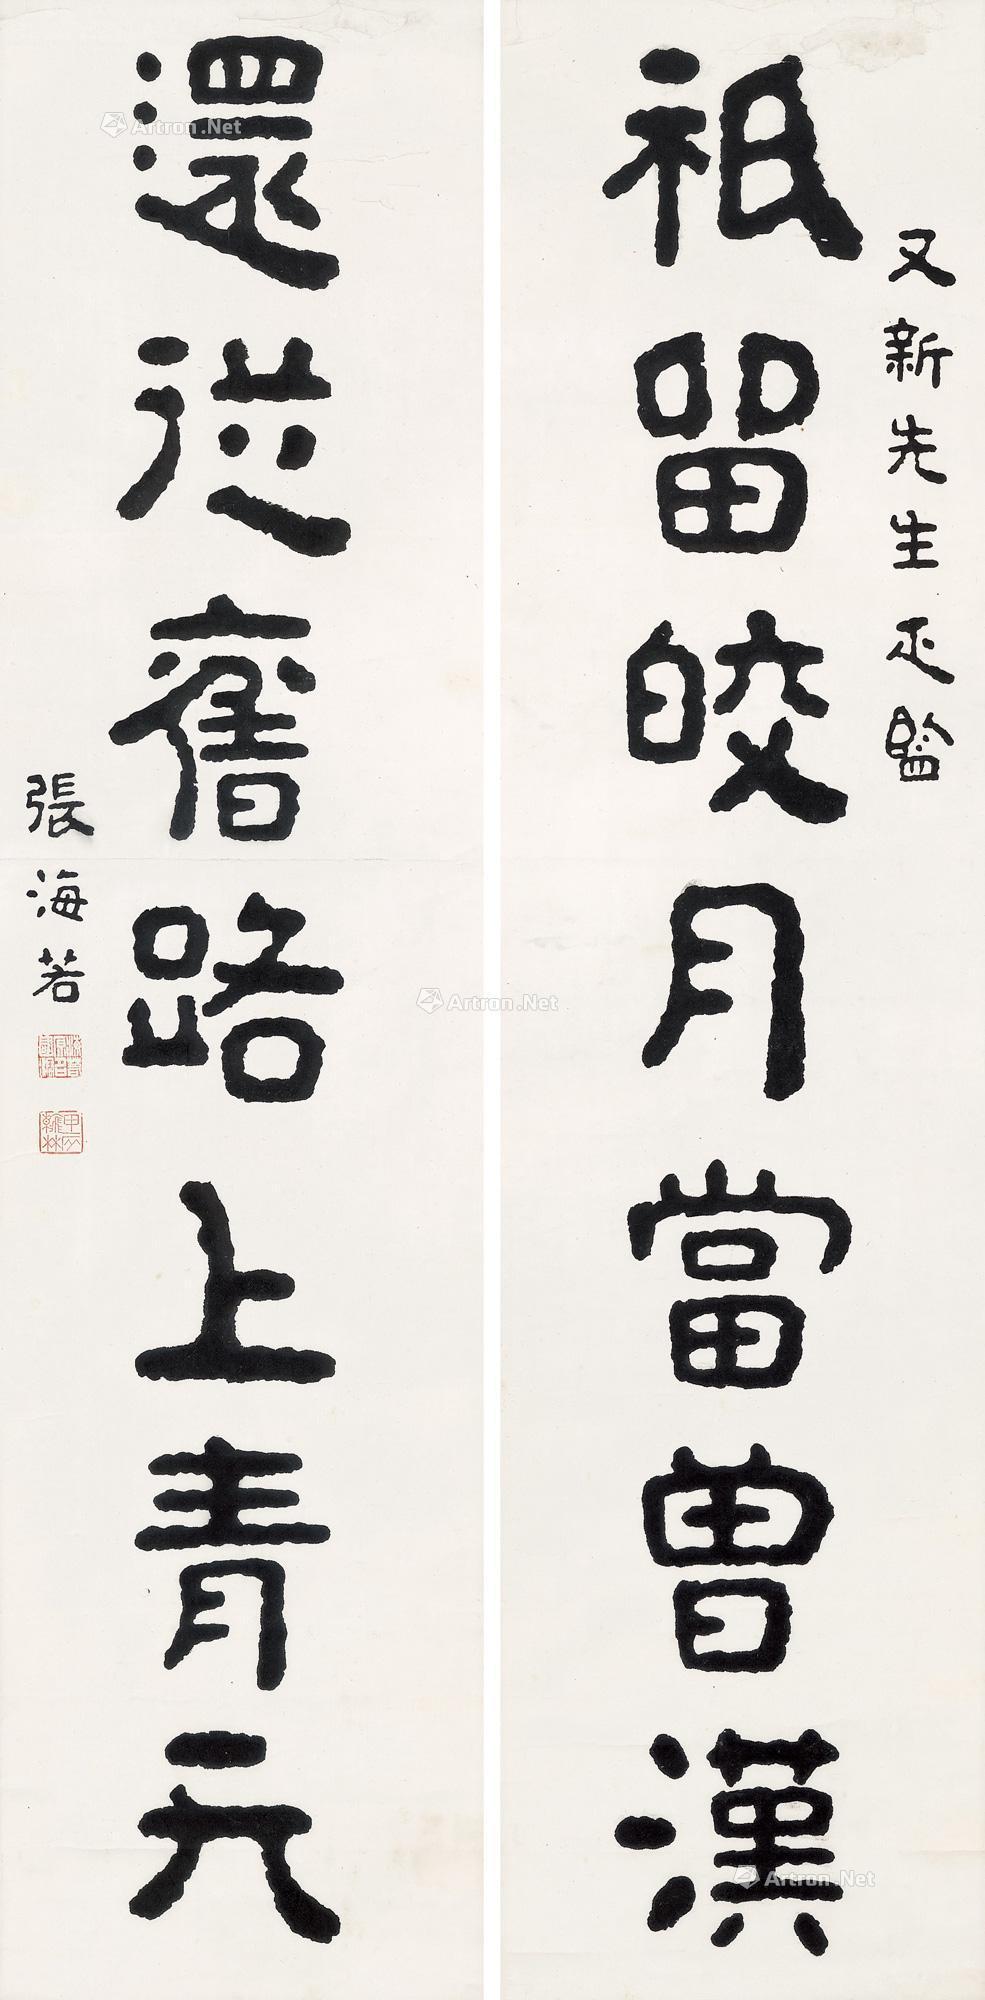 又新先生正監
祇留皎月當曾漢
還從舊路上青天
張海若
Artron.Net
Artron.Net
Artron.Net